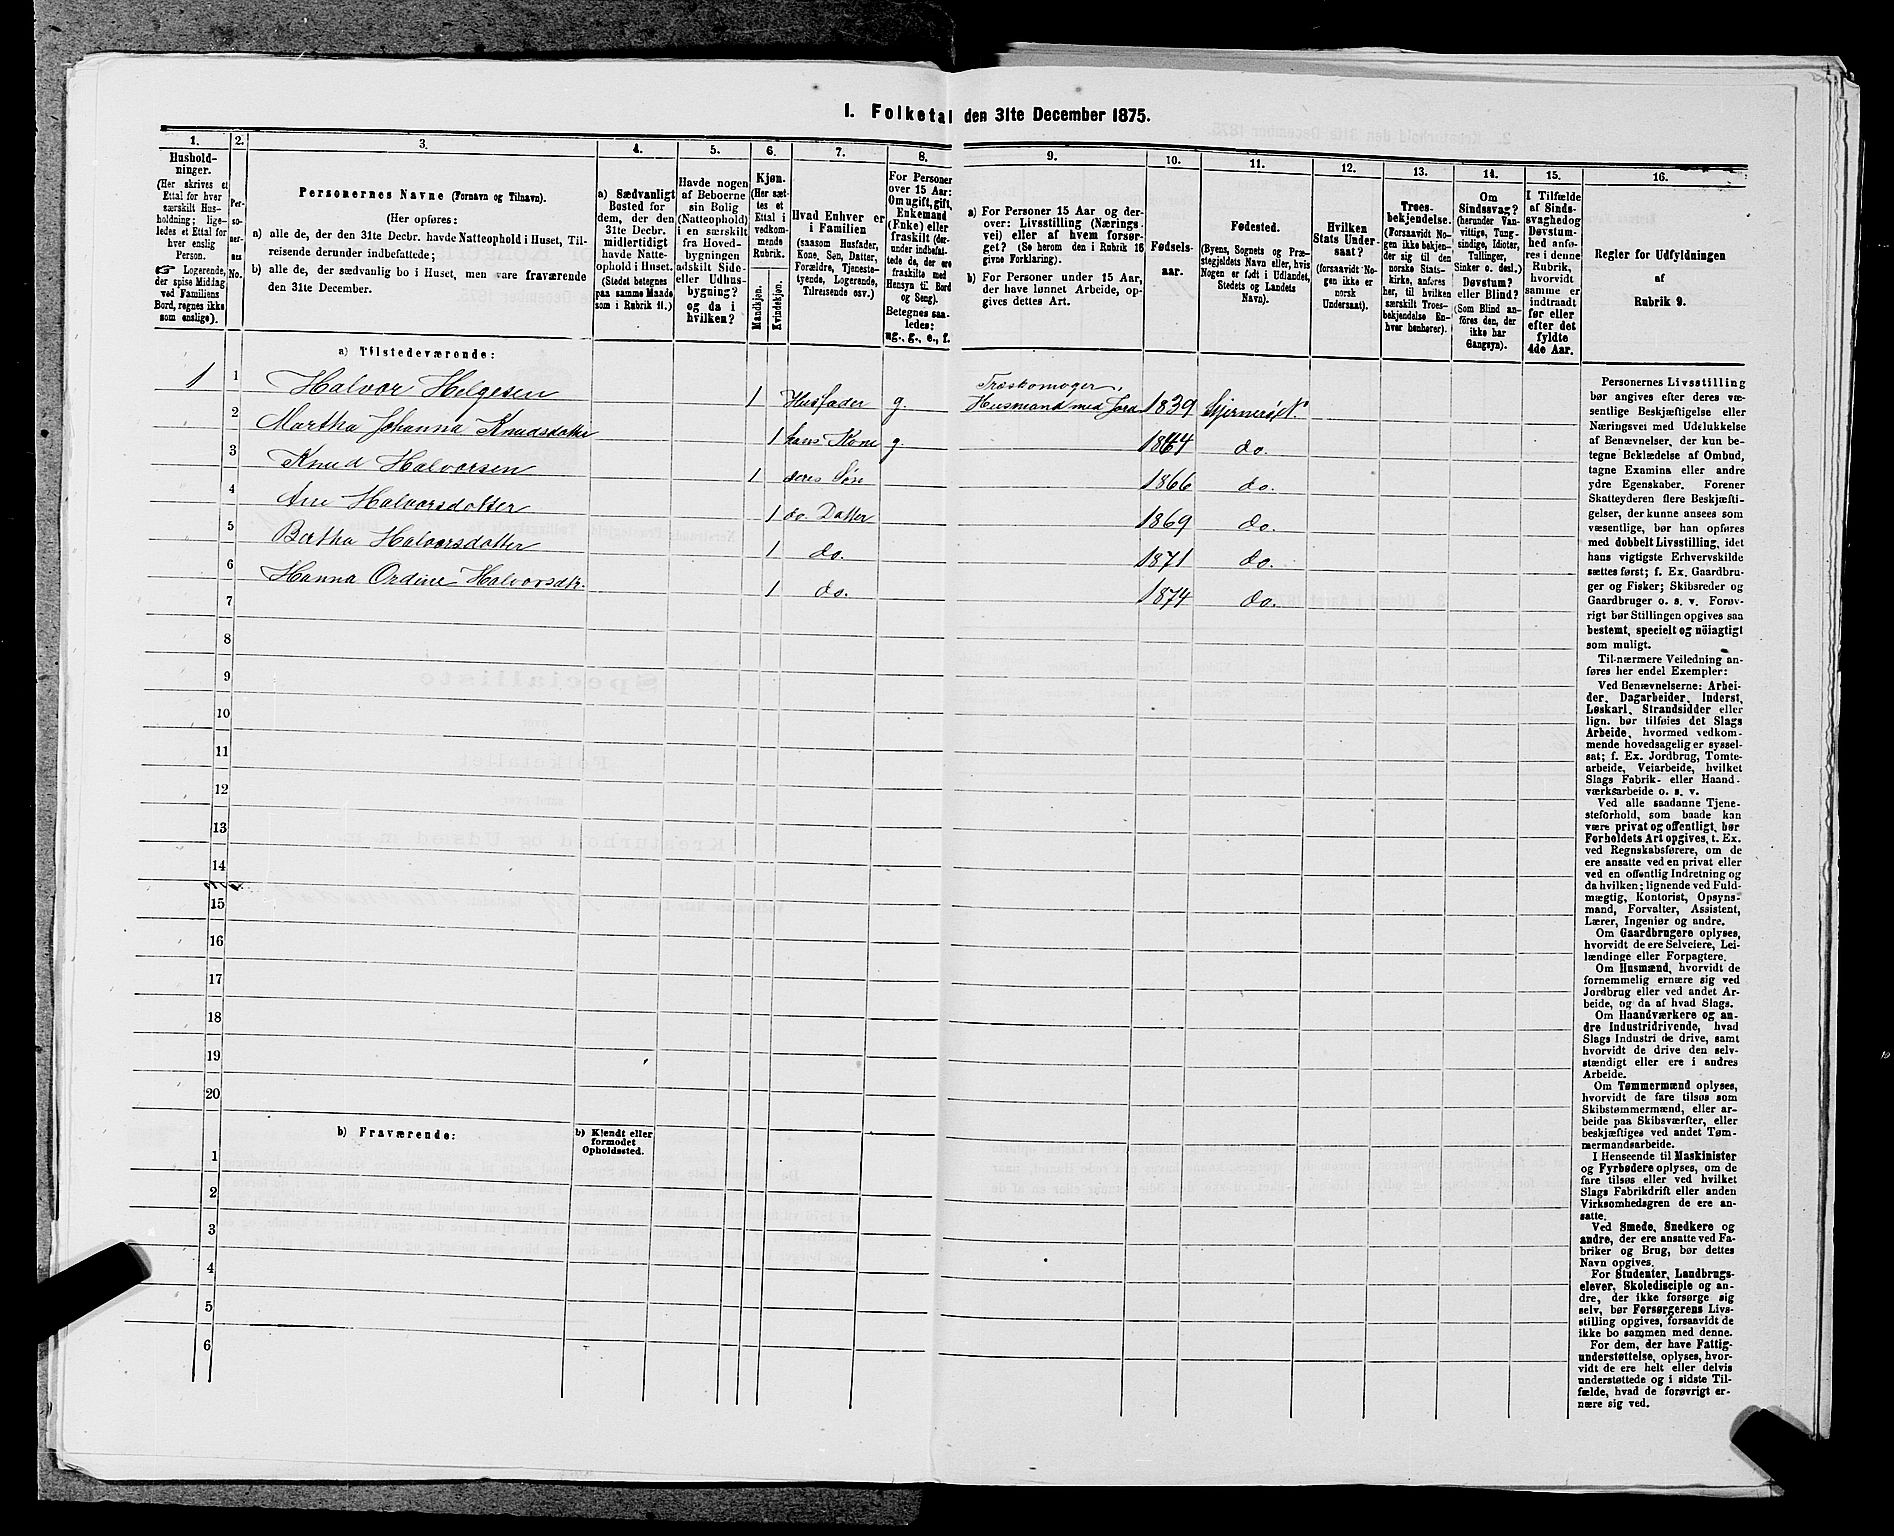 I. Folketal den 31te December 1875.
1.
Hushold-
ninger.
(Her skrives et
Ettal for hver
særskilt Hus-
holdning; lige-
ledes et Ettal for
hver enslig
Person.
☞ Logerende,
der spise Middag
ved Familiens
Bord, regnes ikke
som enslige).
2.
Per-
so-
ner-
nes
No.
3.
Personernes Navne (Fornavn og Tilnavn).
(Her opføres:
a) alle de, der den 31te Decbr. havde Natteophold i Huset, Til-
reisende derunder indbefattede;
b) alle de, der sædvanlig bo i Huset, men vare fraværende
den 31te December.
4.
a) Sædvanligt
Bosted for
dem, der den
31te Decbr.
midlertidigt
havde Natte-
ophold i Huset.
(Stedet betegnes
paa samme Maade
som i Rubrik 11.)
5.
Havde nogen
af Beboerne
sin Bolig
(Natteophold)
i en særskilt
fra Hoved-
bygningen
adskilt Side-
eller Udhus-
bygning?
og da i
hvilken?
6.
Kjøn.
(Her sæt-
tes et
Ettal i
vedkom-
mende
Rubrik.
Mandkjøn.
Kvindekjøn.
7.
Hvad Enhver er
i Familien
(saasom Husfader,
Kone, Søn, Datter,
Forældre, Tjeneste-
tyende, Logerende,
Tilreisende osv.)
8.
For Personer
over 15 Aar:
Om ugift, gift,
Enkemand
(Enke) eller
fraskilt (der-
under indbefat-
tede de, der ere
fraskilte med
Hensyn til Bord
og Seng).
Betegnes saa-
ledes:
ug., g., e., f.
9.
a) For Personer 15 Aar og der-
over: Livsstilling (Nærings-
vei) eller af hvem forsør-
get? (Se herom den i Rubrik 16
givne Forklaring).
b) For Personer under 15 Aar,
der have lønnet Arbeide, op-
gives dettes Art.
10.
Fødsels-
aar.
11.
Fødested.
(Byens, Sognets og Præ-
stegjeldets Navn eller, hvis
Nogen er født i Udlandet,
Stedets og Landets
Navn).
12.
Hvilken
Stats Under-
saat?
(forsaavidt No-
gen ikke er
norsk
Undersaat).
13.
Troes-
bekjendelse.
(Forsaavidt No-
gen ikke bekjen-
der sig til den
norske Stats-
kirke, anføres
her, til hvilken
særskilt Troes-
bekjendelse En-
hver henhører).
14.
Om
Sindssvag?
(herunder Van-
vittige, Tung-
sindige, Idioter,
Tullinger,
Sinker o. desl.)
Døvstum?
eller Blind?
(Som Blind an-
føres den, der
ikke har
Gangsyn).
15.
I Tilfælde
af Sinds-
svaghed og
Døvstum-
hed anfø-
res i denne
Rubrik,
hvorvidt
samme er
indtraadt
før eller
efter det
fyldte
4de Aar.
16.
Regler for Udfyldningen
af
Rubrik 9.
a) Tilstedeværende:
1 1 Halvor Helgesen 1 Husfader g. Træskomager, Husmand med Jord 1839 Sjernerøet.
2 Martha Johanna Knudsdatter 1 hans Kone g. 1844 do.
3 Knud Halvorsen 1 deres Søn 1866 do.
4 Ane Halvorsdatter 1 do. Datter 1869 do.
5 Bertha Halvorsdatter 1 do. 1871 do.
6 Hanna Ordine Halvorsdtr. 1 do. 1874 do.
7
8
9
10
11
12
13
14
15
16
17
18
19
20
b) Fraværende:
b) Kjendt eller
formodet
Opholdssted.
1
2
3
4
5
6
Personernes Livsstilling
bør angives efter deres væ-
sentlige Beskjæftigelse eller
Næringsvei med Udelukkelse
af Benævnelser, der kun be-
tegne Beklædelse af Ombud,
tagne Examina eller andre
ydre Egenskaber. Forener
Skatteyderen flere Beskjæfti-
gelser, der kunne ansees som
væsentlige, bør han opføres
med dobbelt Livsstilling, idet
hans vigtigste Erhvervskilde
sættes først; f. Ex. Gaardbru-
ger og Fisker; Skibsreder og
Gaardbruger o. s. v. Forøv-
rigt bør Stillingen opgives saa
bestemt, specielt og nöiagtigt
som muligt.
Til nærmere Veiledning an-
føres her endel Exempler:
Ved Benævnelserne: Arbei-
der, Dagarbeider, Inderst,
Løskarl, Strandsidder eller
lign. bør tilføies det Slags
Arbeide, hvormed vedkom-
mende hovedsagelig er syssel-
sat; f. Ex. Jordbrug, Tomte-
arbeide, Veiarbeide, hvilket
Slags Fabrik- eller Haand-
værksarbeide o. s. v.
Ved alle saadanne Tjene-
steforhold, som baade kan
være privat og offentligt, bør
Forholdets Art opgives, t. Ex.
ved Regnskabsførere, om de
ere ansatte ved en privat eller
ved en offentlig Indretning og
da hvilken; lignende ved Fuld-
mægtig, Kontorist, Opsyns-
mand, Forvalter, Assistent,
Lærer, Ingeniør og andre.
Om Gaardbrugere oplyses,
hvorvidt de ere Selveiere, Lei-
lændinge eller Forpagtere.
Om Husmænd, hvorvidt de
fornemmelig ernære sig ved
Jordbrug eller ved andet Ar-
beide, og da af hvad Slags.
Om Haandværkere og an-
dre Industridrivende, hvad
Slags Industri de drive, samt
hvorvidt de drive den selv-
stændigt eller ere i andres
Arbeide.
Om Tømmermænd oplyses,
hvorvidt de fare tilsøs som
Skibstømmermænd, eller ar-
beide paa Skibsværfter, eller
beskjæftiges ved andet Tøm-
mermandsarbeide.
I Henseende til Maskinister
og Fyrbødere oplyses, om de
fare tilsøs eller ved hvilket
Slags Fabrikdrift eller anden
Virksomhedsgren de ere an-
satte.
Ved Smede, Snedkere og
andre, der ere ansatte ved Fa-
briker og Brug, bør dettes
Navn opgives.
For Studenter, Landbrugs-
elever, Skoledisciple og an-
dre, der ikke forsørge sig
selv, bør Forsørgerens Livs-
stilling opgives, forsaavidt de
ikke bo sammen med denne.
For dem, der have Fattig-
understøttelse, oplyses, hvor-
vidt de ere helt eller delvis
understøttede og i sidste Til-
fælde, hvad de forøvrigt er-
nære sig ved.